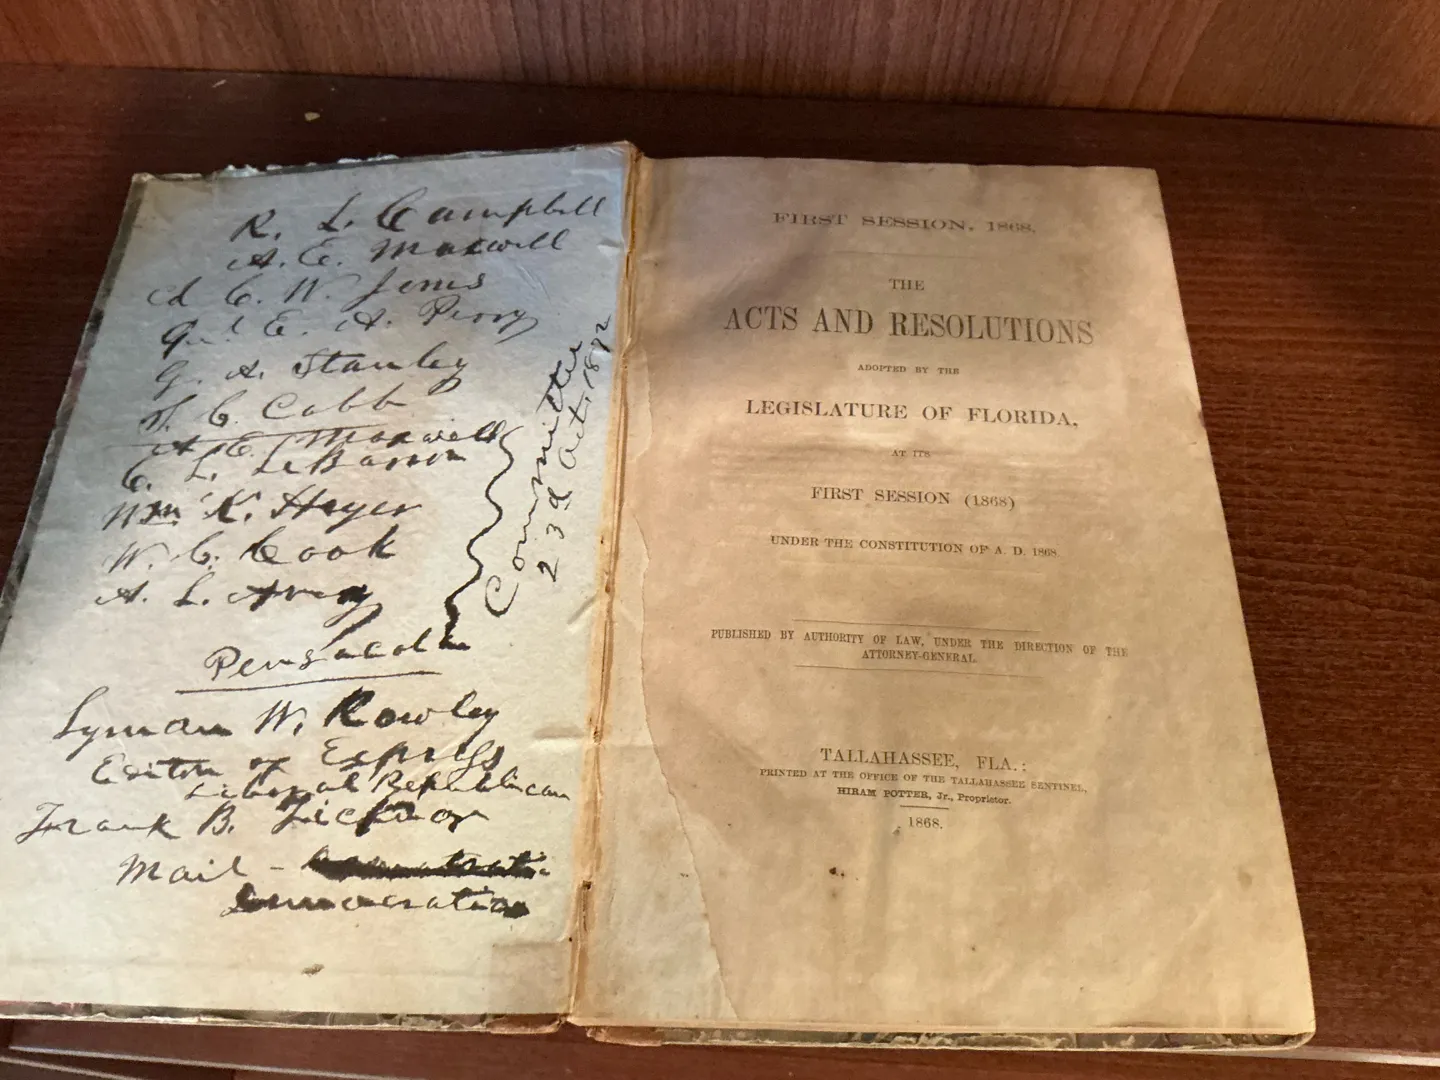 R. L. Campbell
A. E. Maxwell
C. W. Jones
E. A. Perry
G. A. Stanley
T. C. Cobb
A. E. Maxwell
C. L. LeBaron
Wm. K. Hyer
W. C. Cook
A. L. Avery
Committee
23d Oct, 1872
Pensacola
Lyman W. Rowley
Editor of Express
Liberal Republican
Frank B.
Mail -
FIRST SESSION, 1868.
THE
ACTS AND RESOLUTIONS
ADOPTED BY THE
LEGISLATURE OF FLORIDA,
AT ITS
FIRST SESSION (1868)
UNDER THE CONSTITUTION OF A. D. 1868.
PUBLISHED BY AUTHORITY OF LAW, UNDER THE DIRECTION OF THE
ATTORNEY-GENERAL.
TALLAHASSEE, FLA.:
PRINTED AT THE OFFICE OF THE TALLAHASSEE SENTINEL,
HIRAM POTTER, Jr., Proprietor.
1868.